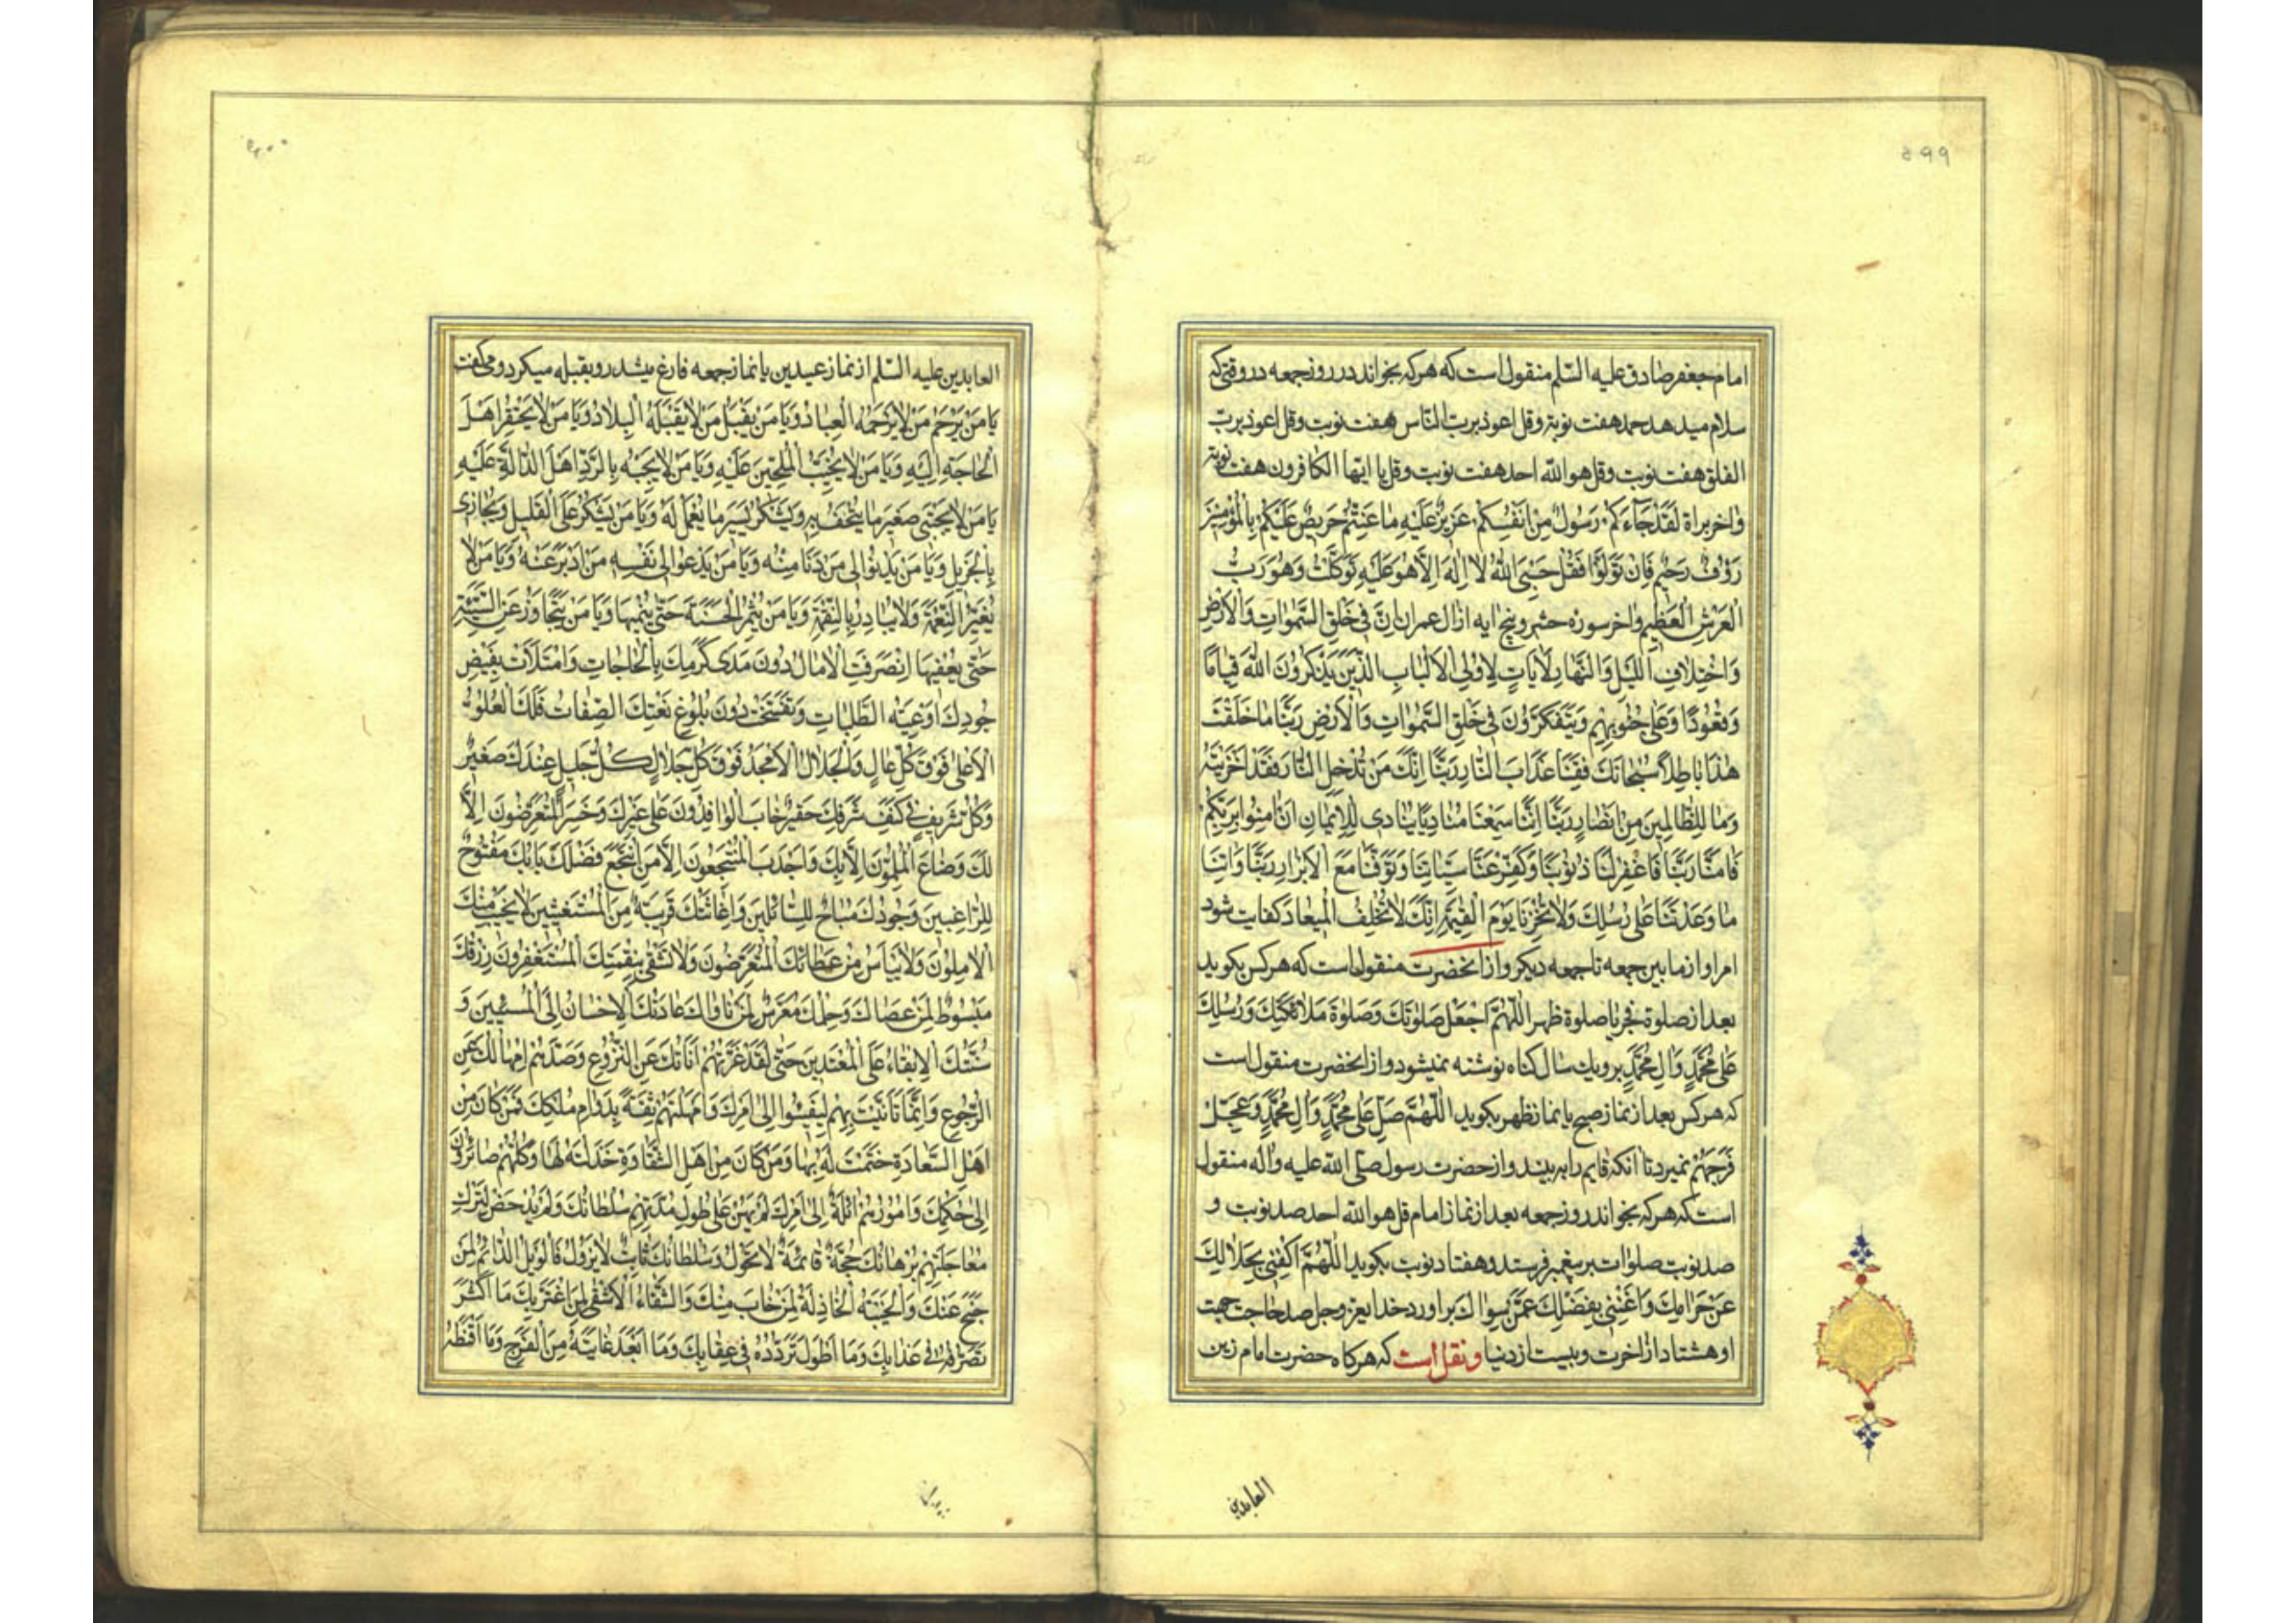 ۵۹۹
امام جعفر صادق علیه السّلم منقول است که هرکه بخواند در روز جمعه در وقتی که
سلام میدهد حمد هفت نوبة وقل اعوذ برب النّاس هفت نوبت وقل اعوذ برب
الفلق هفت نوبت وقل هو اللّه احد هفت نوبت وقل یا ایّها الکافرون هفت نوبة
وَاخر براة لَقَدْ جَآءَكُمْ رَسُولٌ مِنْ اَنْفُسِكُمْ عَزِيزٌ عَلَيْهِ مَا عَنِتُّمْ حَرِيصٌ عَلَيْكُمْ بِالْمُؤْمِنِينَ
رَؤُفٌ رَحِيْمٌ فَاِنْ تَوَلَّوْا فَقُلْ حَسْبِيَ اللّٰهُ لَا اِلٰهَ اِلَّا هُوَ عَلَيْهِ تَوَكَّلْتُ وَهُوَ رَبُّ
الْعَرْشِ الْعَظِيْمِ واخر سوره حشر وپنج ایه از ال عمران اِنَّ فِي خَلْقِ السَّمٰوَاتِ وَالْاَرْضِ
وَاخْتِلَافِ اللَّيْلِ وَالنَّهَارِ لَاٰيَاتٍ لِاُولِي الْاَلْبَابِ الَّذِيْنَ يَذْكُرُونَ اللّٰهَ قِيَامًا
وَقُعُودًا وَعَلٰى جُنُوبِهِمْ وَيَتَفَكَّرُونَ فِي خَلْقِ السَّمٰوَاتِ وَالْاَرْضِ رَبَّنَا مَا خَلَقْتَ
هٰذَا بَاطِلًا سُبْحَانَكَ فَقِنَا عَذَابَ النَّارِ رَبَّنَا اِنَّكَ مَنْ تُدْخِلِ النَّارَ فَقَدْ اَخْزَيْتَهُ
وَمَا لِلظَّالِمِينَ مِنْ اَنْصَارٍ رَبَّنَا اِنَّنَا سَمِعْنَا مُنَادِيًا يُنَادِى لِلْاِيْمَانِ اَنْ اٰمِنُوا بِرَبِّكُمْ
فَاٰمَنَّا رَبَّنَا فَاغْفِرْ لَنَا ذُنُوْبَنَا وَكَفِّرْ عَنَّا سَيِّئَاتِنَا وَتَوَفَّنَا مَعَ الْاَبْرَارِ رَبَّنَا وَاٰتِنَا
مَا وَعَدْتَنَا عَلٰى رُسُلِكَ وَلَا تُخْزِنَا يَوْمَ الْقِيٰمَةِ اِنَّكَ لَا تُخْلِفُ الْمِيعَادَ کفایت شود
امر او از مابین جمعه تا جمعه دیکر و از انحضرت منقول است که هرکس بکوید
بعد از صلوة فجر یا صلوة ظهر اَللّٰهُمَّ اجْعَلْ صَلَوٰتَكَ وَصَلَوٰةَ مَلَائِكَتِكَ وَرُسُلِكَ
عَلٰى مُحَمَّدٍ وَاٰلِ مُحَمَّدٍ برو یك سال كناه نوشته نمیشود و از انحضرت منقول است
که هرکس بعد از نماز صبح یا نماز ظهر بکوید اَللّٰهُمَّ صَلِّ عَلٰى مُحَمَّدٍ وَاٰلِ مُحَمَّدٍ وَعَجِّلْ
فَرَجَهُمْ نمیرد تا انکه قایم را به بیند و از حضرت رسول صلّی اللّه علیه واله منقول
است که هرکه بخواند روز جمعه بعد از نماز امام قل هو اللّه احد صد نوبت و
صد نوبت صلوات بر پیغمبر فرستد و هفتاد نوبت بکوید اَللّٰهُمَّ اكْفِنِي بِحَلَالِكَ
عَنْ حَرَامِكَ وَاَغْنِنِي بِفَضْلِكَ عَمَّنْ سِوَاكَ براورد خدا یعز وجل صد حاجت جهت
او هشتاد از اخرت و بیست از دنیا و نقل است که هرکاه حضرت امام زین
العابدین
العابدین علیه السّلم از نماز عیدین یا نماز جمعه فارغ میشد رو بقبله میکرد و میکفت
يَا مَنْ يَرْحَمُ مَنْ لَا يَرْحَمُهُ الْعِبَادُ وَيَا مَنْ يَقْبَلُ مَنْ لَا يَقْبَلُهُ الْبِلَادُ وَيَا مَنْ لَا يَحْتَقِرُ اَهْلَ
الْحَاجَةِ اِلَيْهِ وَيَا مَنْ لَا يُخَيِّبُ الْمُلِحِّيْنَ عَلَيْهِ وَيَا مَنْ لَا يَجْبَهُ بِالرَّدِّ اَهْلَ الدَّالَّةِ عَلَيْهِ
يَا مَنْ لَا يَجْتَبِى صَغِيْرَ مَا يُتْحَفُ بِهِ وَيَشْكُرُ يَسِيْرَ مَا يُعْمَلُ لَهُ وَيَا مَنْ يَشْكُرُ عَلَى الْقَلِيْلِ وَيُجَازِى
بِالْجَزِيْلِ وَيَا مَنْ يَدْنُوْا اِلٰى مَنْ دَنَا مِنْهُ وَيَا مَنْ يَدْعُوْا اِلٰى نَفْسِهِ مَنْ اَدْبَرَ عَنْهُ وَيَا مَنْ لَا
يُغَيِّرُ النِّعْمَةَ وَلَا يُبَادِرُ بِالنَّقِمَةِ وَيَا مَنْ يُثْمِرُ الْحَسَنَةَ حَتّٰى يُنْمِيَهَا وَيَا مَنْ يَتَجَاوَزُ عَنِ السَّيِّئَةِ
حَتّٰى يُعْفِيَهَا اِنْصَرَفَتِ الْاٰمَالُ دُوْنَ مَدٰى كَرَمِكَ بِالْحَاجَاتِ وَامْتَلَأَتْ بِفَيْضِ
جُوْدِكَ اَوْعِيَةُ الطَّلِبَاتِ وَتَفَسَّخَتْ دُوْنَ بُلُوْغِ نَعْتِكَ الصِّفَاتُ فَلَكَ الْعُلُوُّ
الْاَعْلٰى فَوْقَ كُلِّ عَالٍ وَالْجَلَالُ الْاَمْجَدُ فَوْقَ كُلِّ جَلَالٍ كُلُّ جَلِيْلٍ عِنْدَكَ صَغِيْرٌ
وَكُلُّ شَرِيْفٍ فِي كَنَفِ شَرَفِكَ حَقِيْرٌ خَابَ الْوَافِدُوْنَ عَلٰى غَيْرِكَ وَخَسِرَ الْمُتَعَرِّضُوْنَ اِلَّا
لَكَ وَضَاعَ الْمُلِمُّوْنَ اِلَّا بِكَ وَاَجْدَبَ الْمُنْتَجِعُوْنَ اِلَّا مَنِ انْتَجَعَ فَضْلَكَ بَابُكَ مَفْتُوْحٌ
لِلرَّاغِبِيْنَ وَجُوْدُكَ مُبَاحٌ لِلسَّائِلِيْنَ وَاِغَاثَتُكَ قَرِيْبَةٌ مِنَ الْمُسْتَغِيْثِيْنَ لَا يَخِيْبُ مِنْكَ
الْاٰمِلُوْنَ وَلَا يَيْأَسُ مِنْ عَطَائِكَ الْمُتَعَرِّضُوْنَ وَلَا تَشْقٰى بِنِقْمَتِكَ الْمُسْتَغْفِرُوْنَ رِزْقُكَ
مَبْسُوْطٌ لِمَنْ عَصَاكَ وَحِلْمُكَ مُعْرَضٌ لِمَنْ نَاوَاكَ عَادَتُكَ الْاِحْسَانُ اِلَى الْمُسِيْئِيْنَ وَ
سُنَّتُكَ الْاِبْقَاءُ عَلَى الْمُعْتَدِيْنَ حَتّٰى لَقَدْ غَرَّتْهُمْ اَنَاتُكَ عَنِ النُّزُوْعِ وَصَدَّهُمْ اِمْهَالُكَ عَنِ
الرُّجُوْعِ وَاِنَّمَا تَاَنَّيْتَ بِهِمْ لِيَفِيْئُوْا اِلٰى اَمْرِكَ وَاَمْهَلْتَهُمْ ثِقَةً بِدَوَامِ مُلْكِكَ فَمَنْ كَانَ مِنْ
اَهْلِ السَّعَادَةِ خَتَمْتَ لَهُ بِهَا وَمَنْ كَانَ مِنْ اَهْلِ الشَّقَاوَةِ خَذَلْتَهُ لَهَا وَكُلُّهُمْ صَائِرُوْنَ
اِلٰى حُكْمِكَ وَاُمُوْرُهُمْ اٰئِلَةٌ اِلٰى اَمْرِكَ لَمْ يَهِنْ عَلٰى طُوْلِ مُدَّتِهِمْ سُلْطَانُكَ وَلَمْ يَدْحَضْ لِتَرْكِ
مُعَاجَلَتِهِمْ بُرْهَانُكَ حُجَّتُكَ قَائِمَةٌ لَا تَحُوْلُ وَسُلْطَانُكَ ثَابِتٌ لَا يَزُوْلُ فَالْوَيْلُ الدَّائِمُ لِمَنْ
جَنَحَ عَنْكَ وَالْخَيْبَةُ الْخَاذِلَةُ لِمَنْ خَابَ مِنْكَ وَالشَّقَاءُ الْاَشْقٰى لِمَنِ اغْتَرَّ بِكَ مَا اَكْثَرَ
تَصَرُّفَهُ فِي عَذَابِكَ وَمَا اَطْوَلَ تَرَدُّدَهُ فِي عِقَابِكَ وَمَا اَبْعَدَ غَايَتَهُ مِنَ الْفَرَجِ وَمَا اَقْنَطَهُ